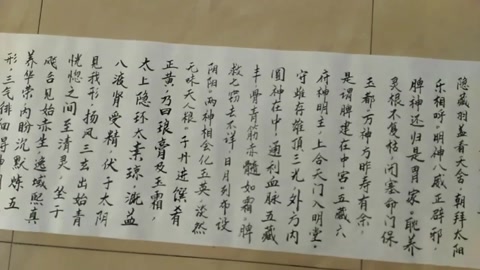 隐藏羽盖看天舍，朝拜太阳
乐相呼，明神八威正辟邪，
脾神还归是胃家，耽养
灵根不复枯，闭塞命门保
玉都，万神方昨寿有余，
是谓脾建在中宫，五藏六
府神明主，上合天门入明堂，
守雌存雄顶三光，外方内
圆神在中，通利血脉五藏
丰，骨青筋赤髓如霜，脾
救七窍去不祥，日月列布设
阴阳，两神相会化玉英，淡然
无味天人粮，子丹进馔肴
正黄，乃曰琅膏及玉霜
太上隐环太素琼，溉益
八液肾受精，伏于太阴
见我形，扬风三玄出始青
恍惚之间至清灵，坐于
飚台见始赤生，逸域熙真
养华荣，内盼沉默炼五
形，三气徘徊得神明